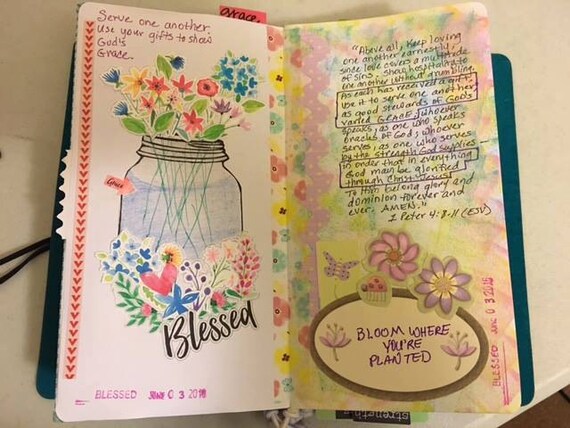 Serve one another.
Use your gifts to show
God's
Grace.
grace.
Grace
Blessed
BLESSED JUNE 0 3 2018
"Above all, keep loving
one another earnestly,
since love covers a multitude
of sins. Show hospitality to
one another without grumbling.
As each has received a gift,
use it to serve one another,
as good stewards of God's
varied GRACE: whoever
speaks, as one who speaks
oracles of God; whoever
serves, as one who serves
by the strength God supplies—
in order that in everything
God may be glorified
through Christ Jesus.
To Him belong glory and
dominion forever and
ever. AMEN."
1 Peter 4:8-11 (ESV)
BLOOM WHERE
YOU'RE
PLANTED
BLESSED JUNE 0 3 2018
strength